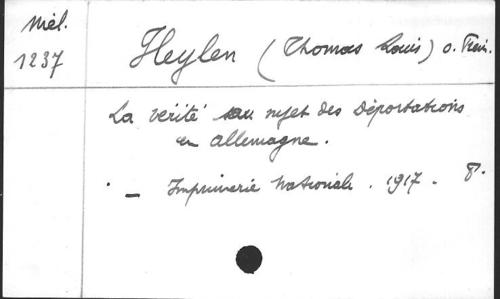 Miél. Heylen (Thomas Louis) o. Prém.
1237
La vérité au sujet des Déportations
en allemagne.
— Imprimerie Nationale. 1917. 8°.